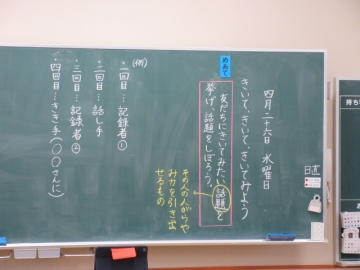 四月二十六日 水曜日
きいて、きいて、きいてみよう
めあて
友だちにきいてみたい話題を
挙げ、話題をしぼろう。
その人の人がらや
みカを引き出
せるもの
(例)
・一回目…記録者①
・二回目…話し手
・三回目…記録者②
・四回目…きき手(〇〇さんに)
日直
持ち